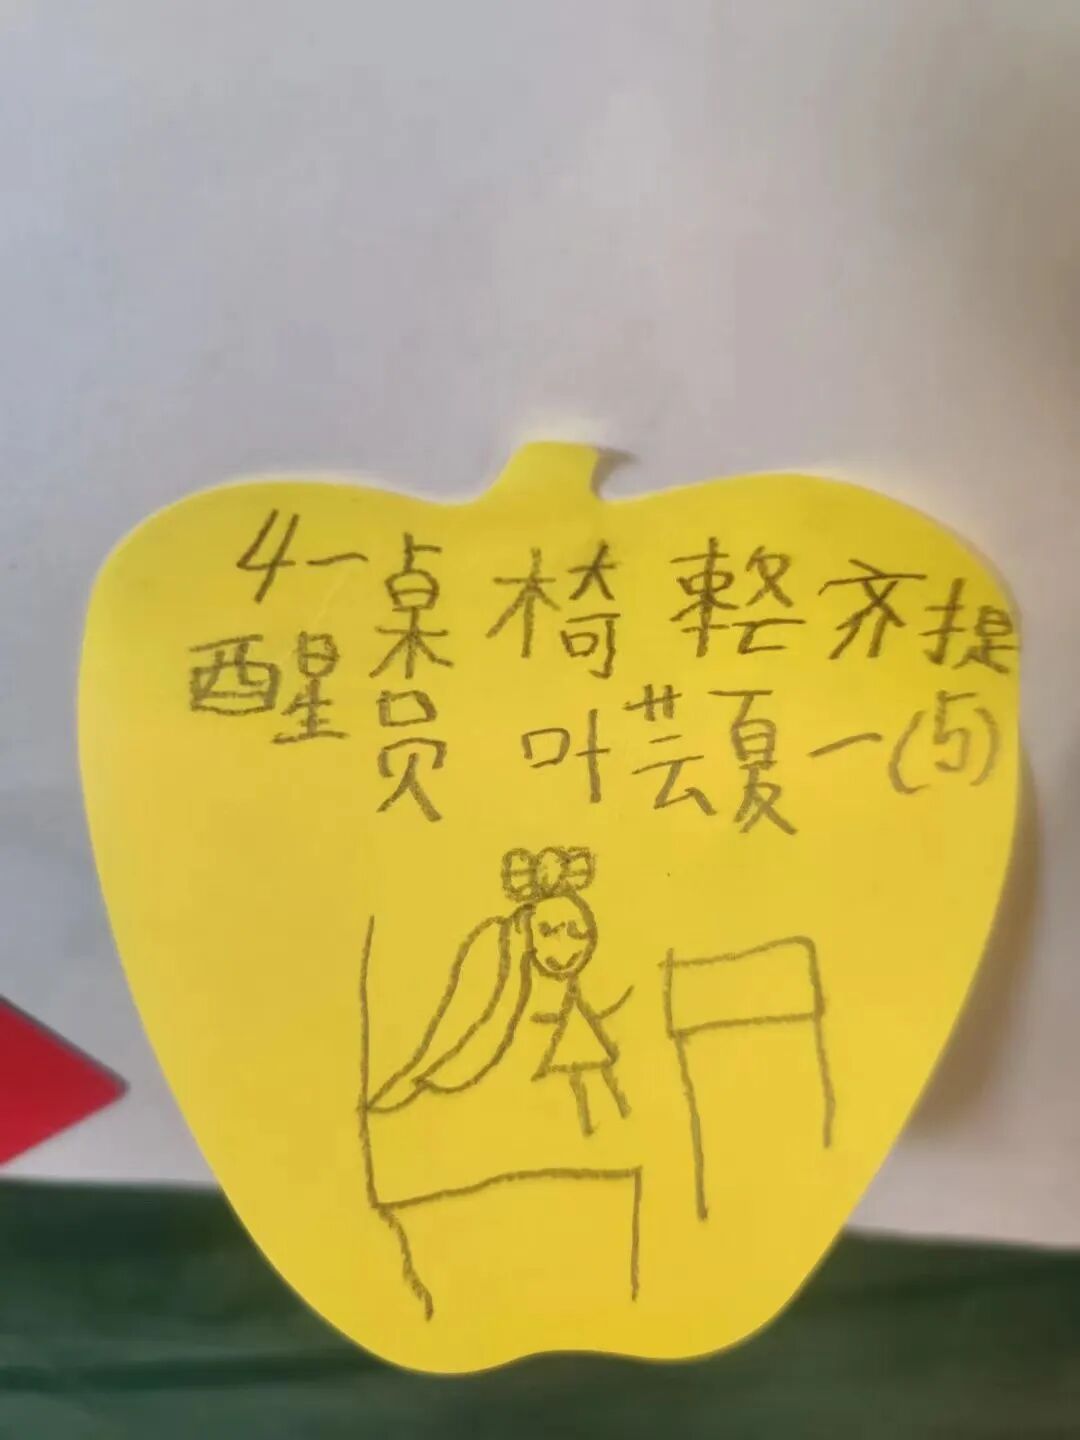 4一桌椅整齐提
醒员 叶芸夏一(5)